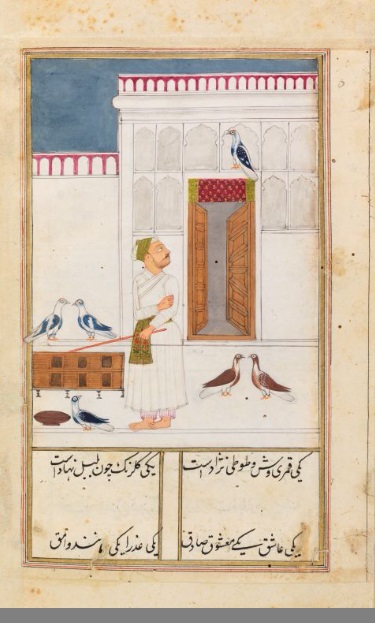 یکی قمری وش و طوطی نژاد است یکی گلرنگ چون بلبل نهاد است
یکی عاشق یکی معشوق صادق یکی عذرا یکی مانند وامق